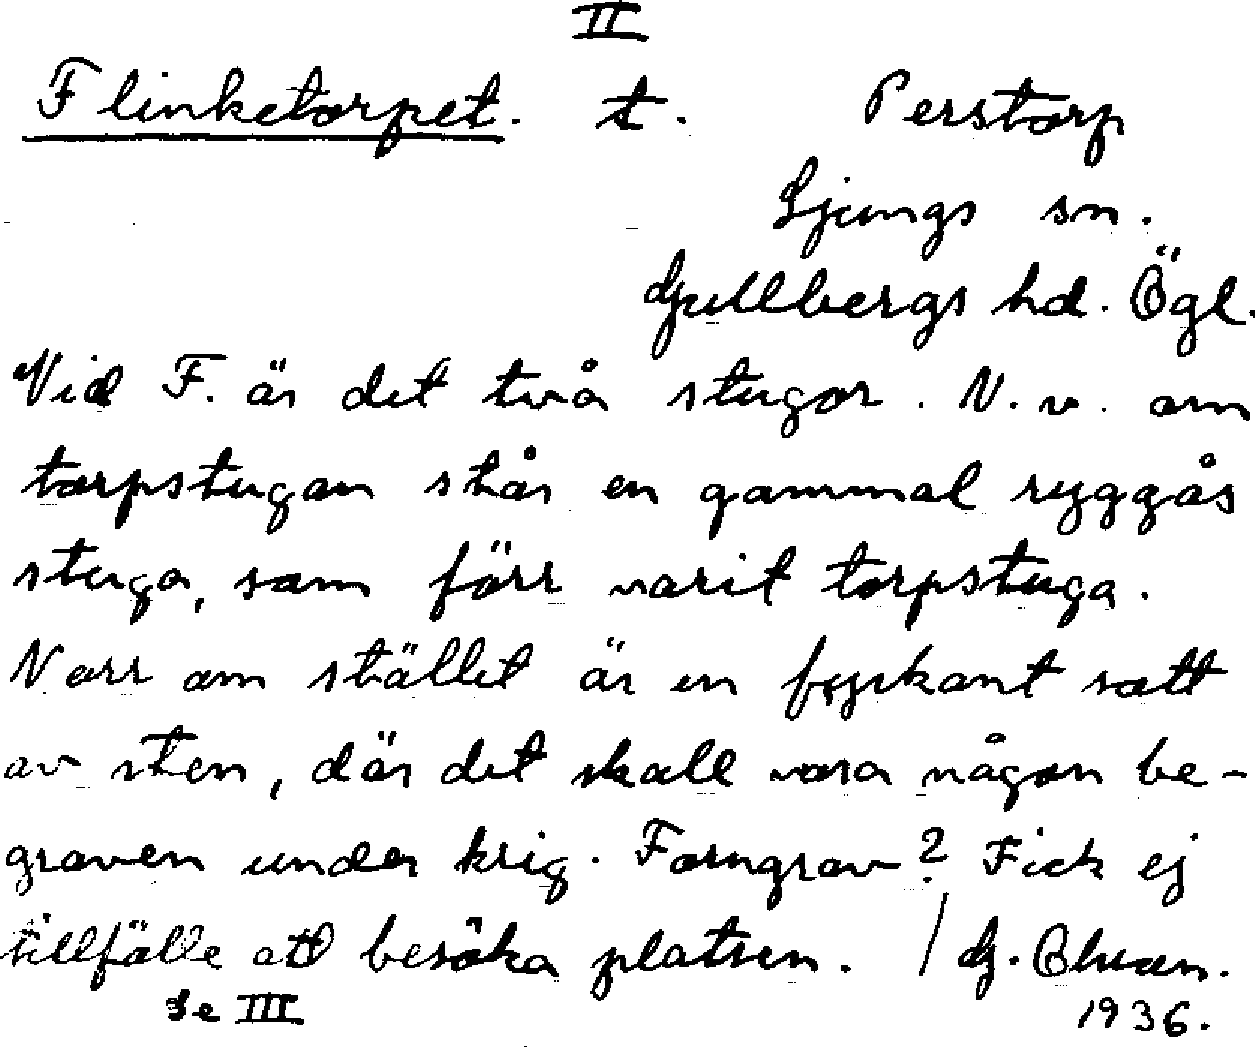 II
Flinketorpet. t. Perstorp
Ljungs sn.
Gullbergs hd. Ögl.
Vid F. är det två stugor. N. v. om
torpstugan står en gammal ryggås
stuga, som förr varit torpstuga.
Norr om stället är en fyrkant satt
av sten, där det skall vara någon be-
graven under krig. Forngrav? Fick ej
tillfälle att besöka platsen. / G.
Se III 1936.